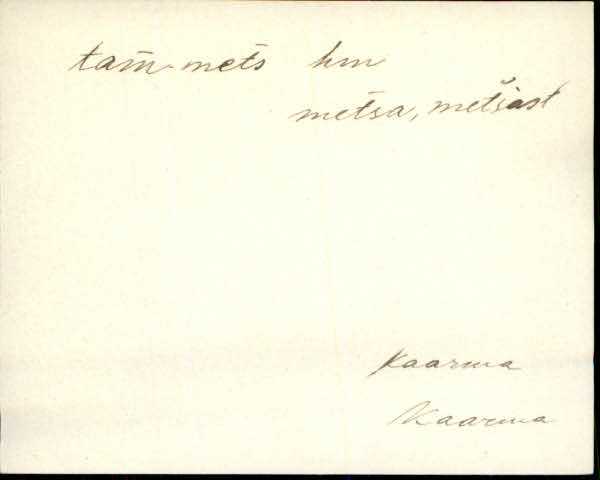 tam̄-mets hm
metsa, metsast
Kaarma
Kaarma